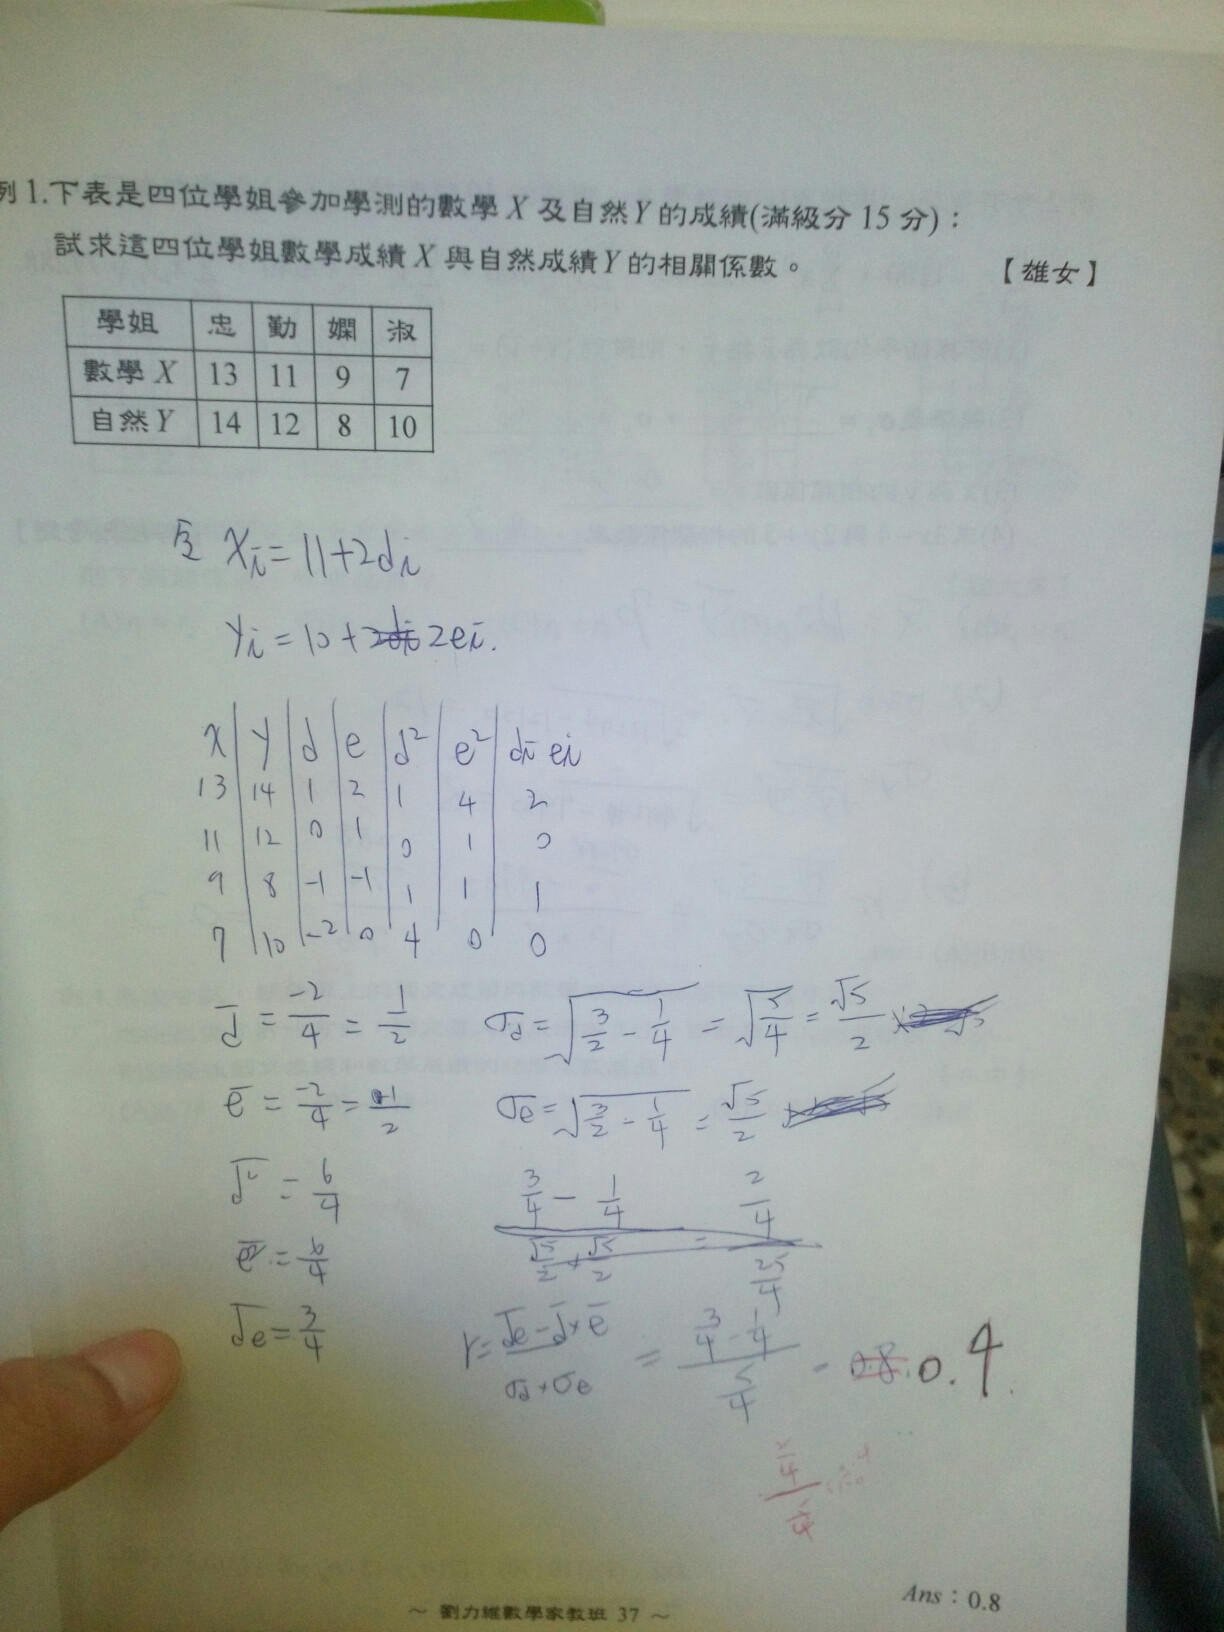 例 1.下表是四位學姐參加學測的數學 X 及自然 Y 的成績(滿級分 15 分)：
試求這四位學姐數學成績 X 與自然成績 Y 的相關係數。 【雄女】
學姐 忠 勤 嫻 淑
數學 X 13 11 9 7
自然 Y 14 12 8 10
令 Xi = 11+2di
Yi = 10+ 2ei.
X y d e d² e² di ei
13 14 1 2 1 4 2
11 12 0 1 0 1 0
9 8 -1 -1 1 1 1
7 10 -2 0 4 0 0
d̄ = -2/4 = 1/2 σd = √(3/2 - 1/4) = √(5/4) = √5/2
ē = -2/4 = -1/2 σe = √(3/2 - 1/4) = √5/2
d² = 6/4 3/4 - 1/4 / √5/2 × √5/2 = 2/4 / 25/4
e² = 6/4
de = 3/4 r = de - d̄×ē / σd × σe = 3/4 - 1/4 / 5/4 = 0.8 0.4.
2/4 / 5/4
Ans：0.8
～ 劉力維數學家教班 37 ～